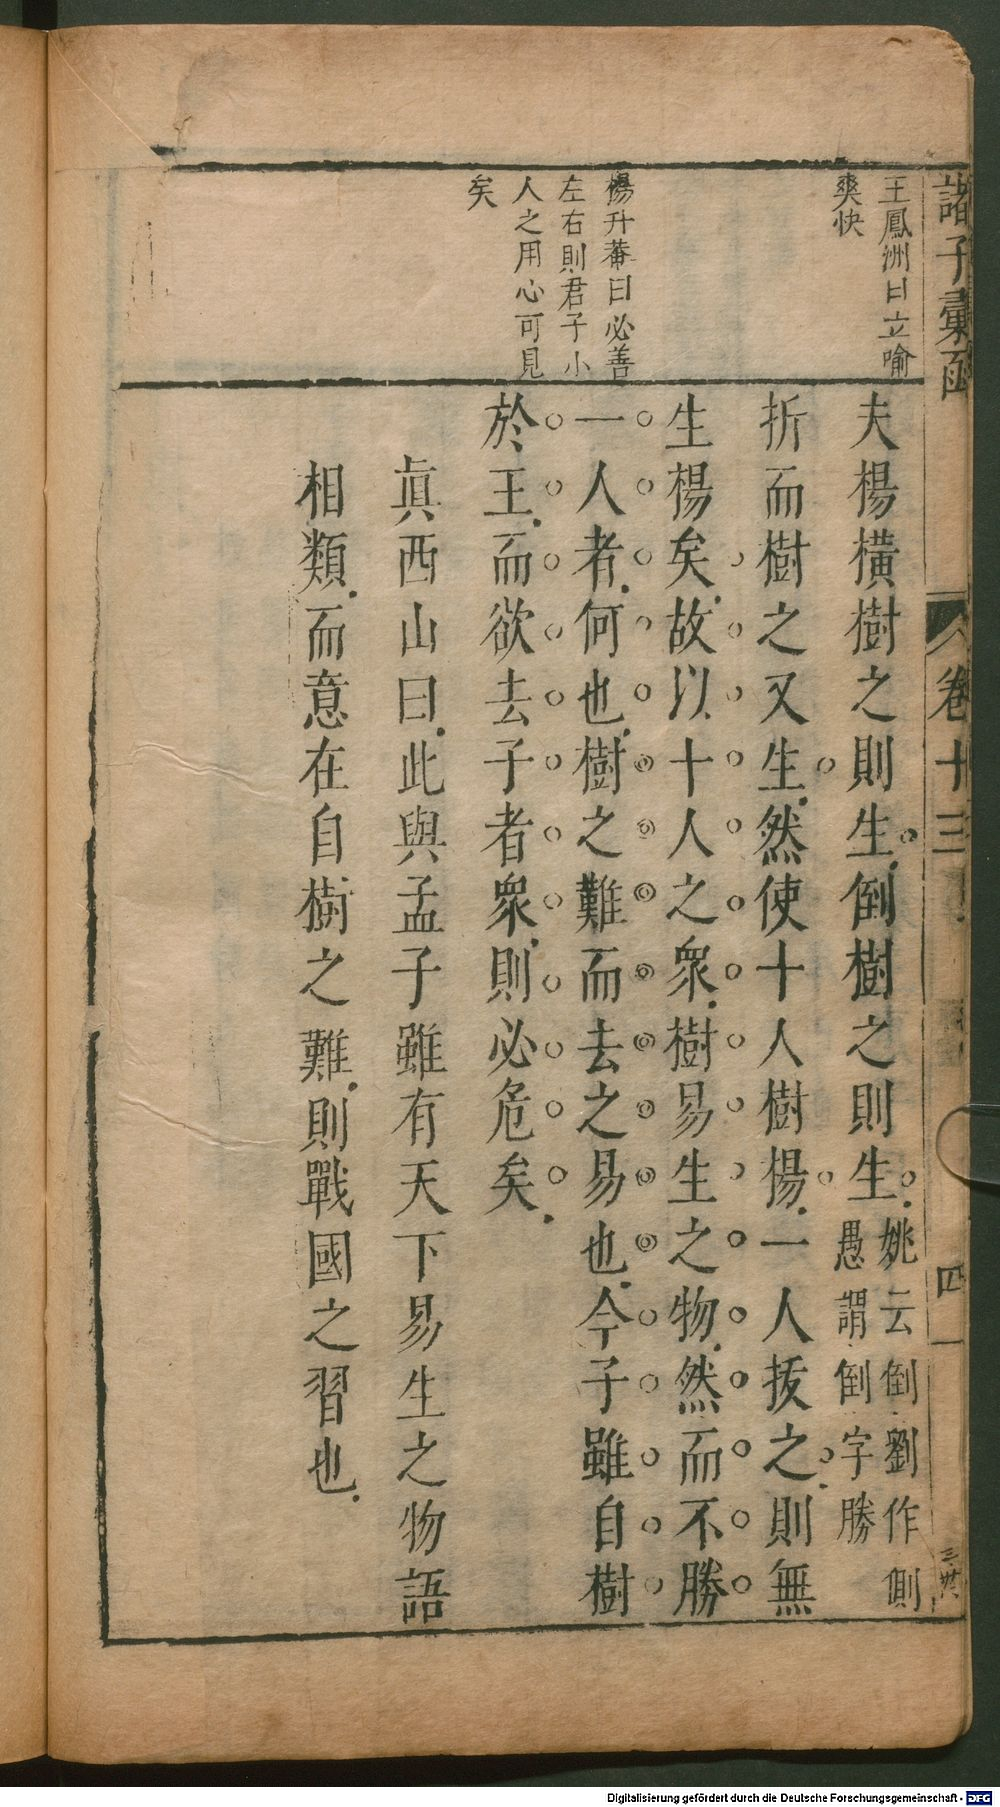 諸子彙函
卷十三
四一
王鳳洲曰立喻
爽快
楊升菴曰必善
左右則君子小
人之用心可見
矣
夫楊橫樹之則生倒樹之則生姚云倒劉作側
愚謂倒字勝
折而樹之又生然使十人樹楊一人拔之則無
生楊矣故以十人之衆樹易生之物然而不勝
一人者何也樹之難而去之易也今子雖自樹
於王而欲去子者衆則必危矣
眞西山曰此與孟子雖有天下易生之物語
相類而意在自樹之難則戰國之習也
Digitalisierung gefördert durch die Deutsche Forschungsgemeinschaft - DFG